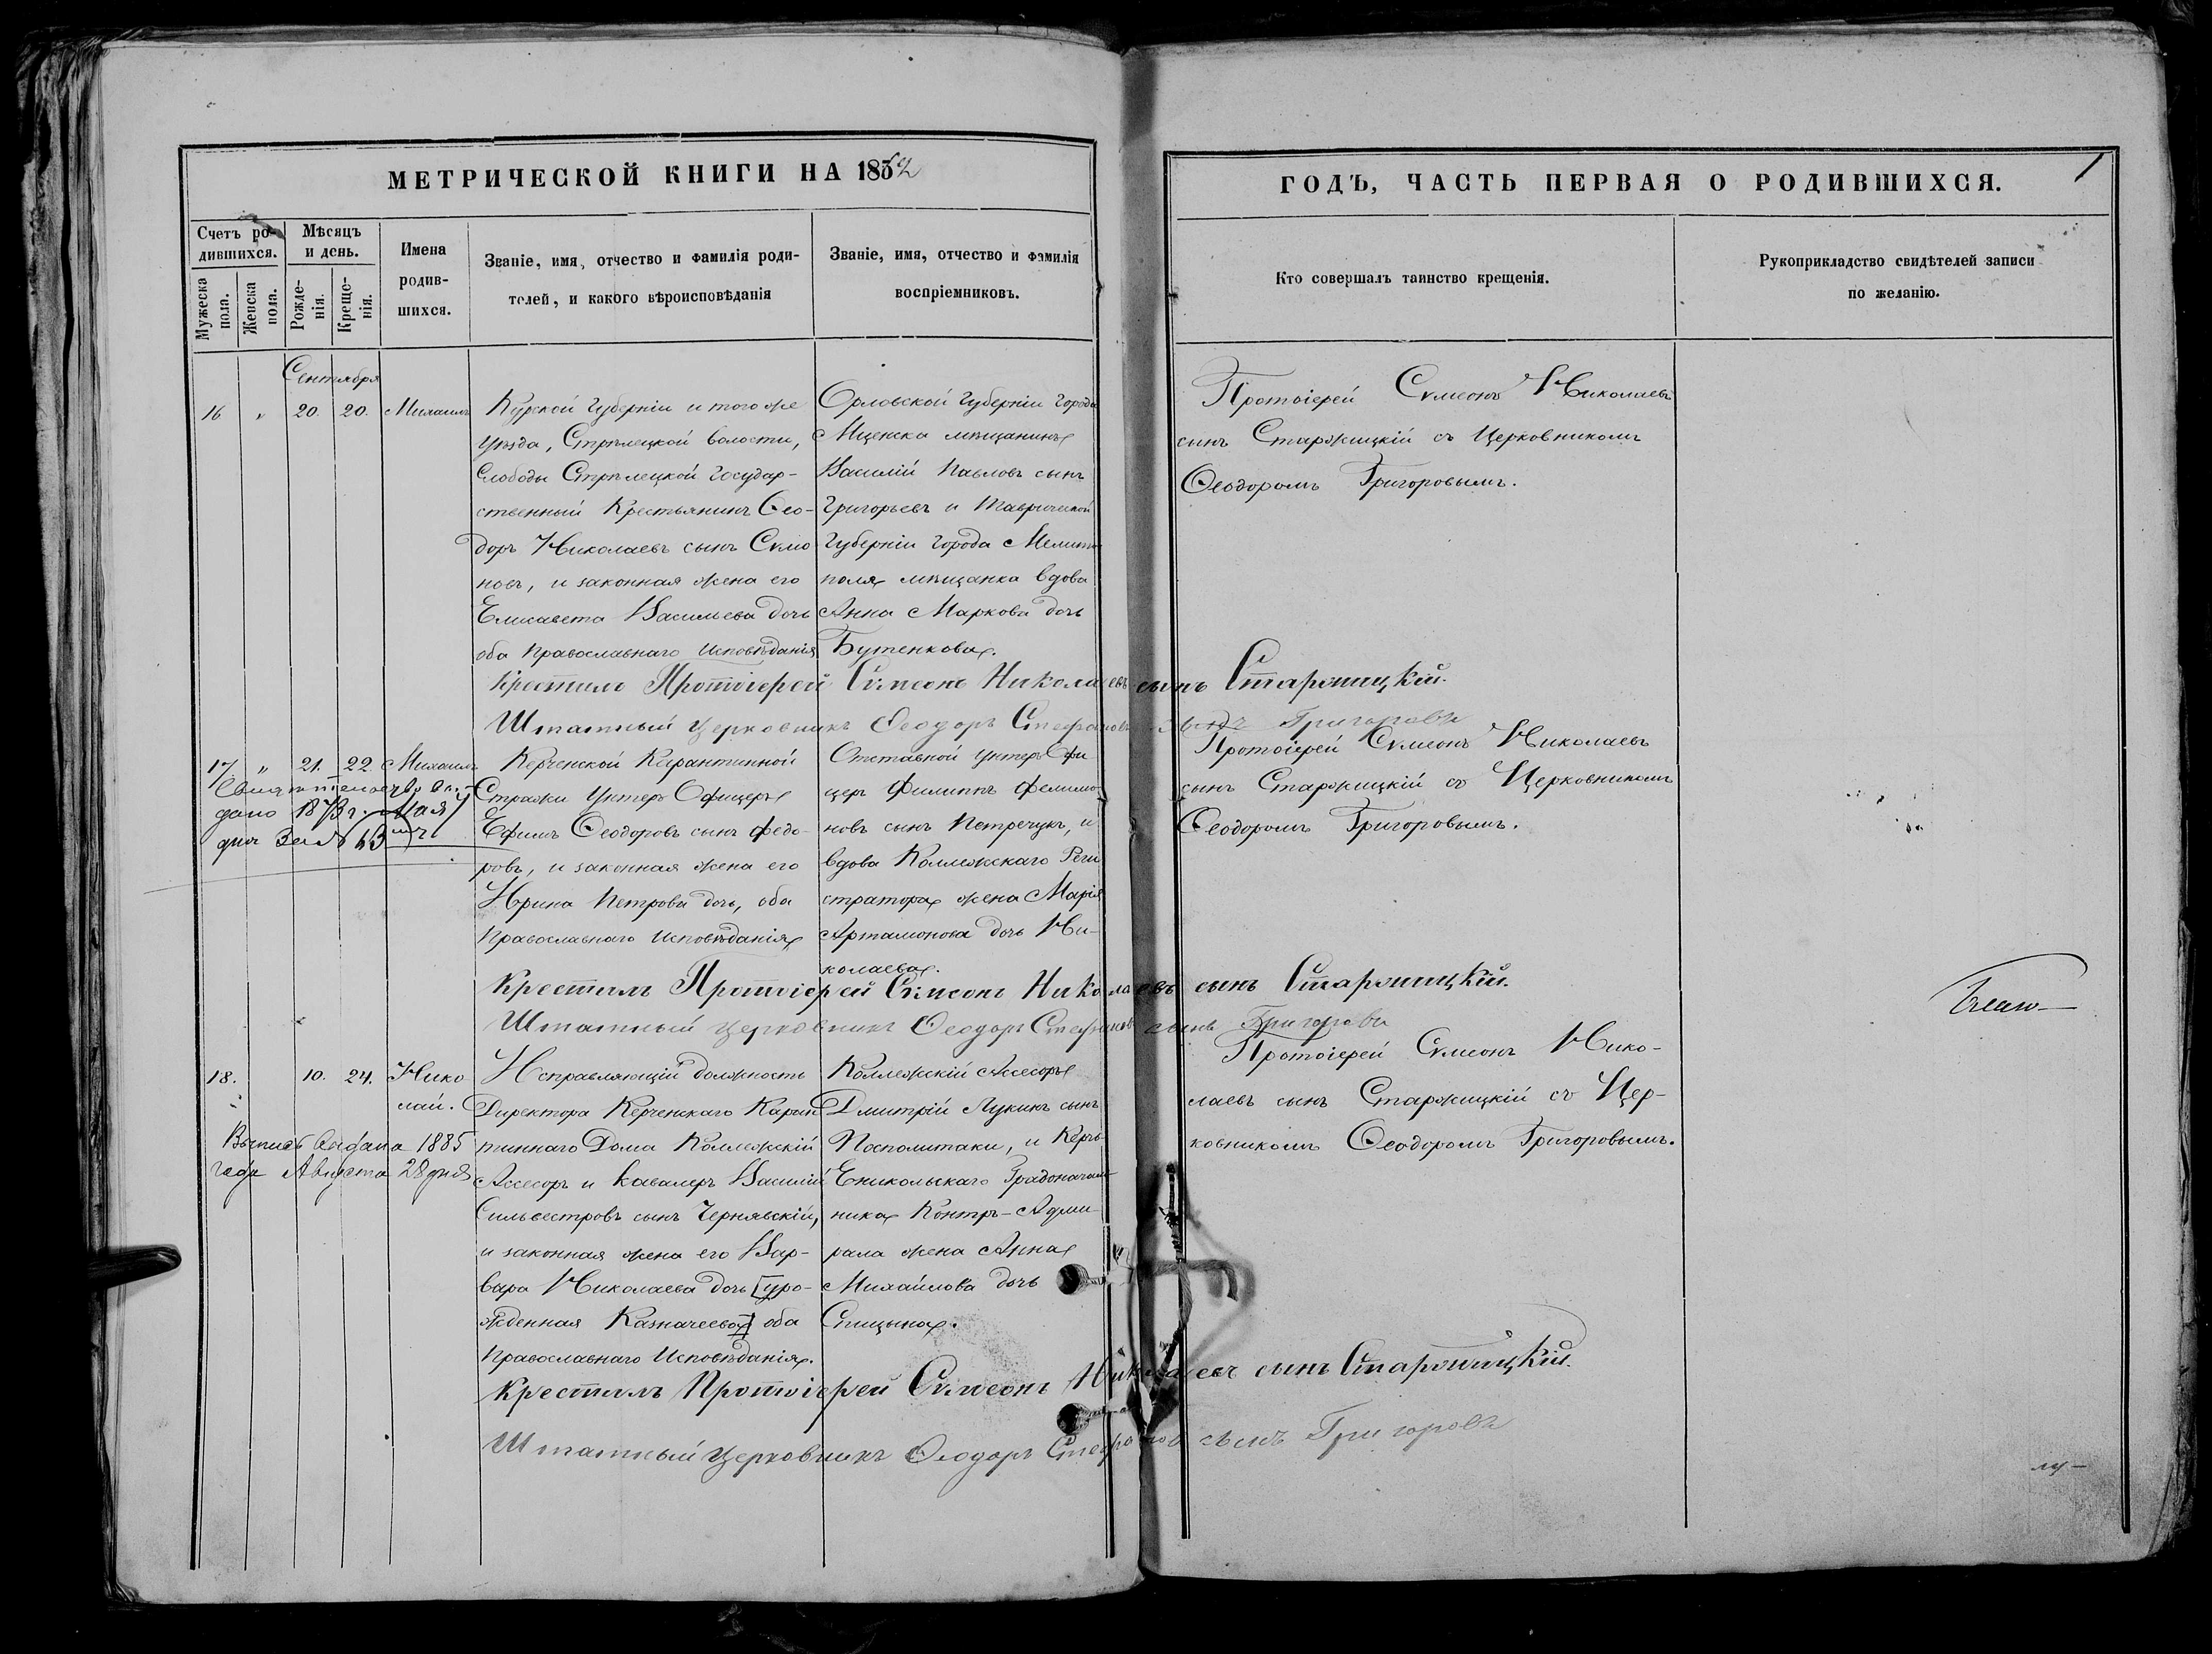 МЕТРИЧЕСКОЙ КНИГИ НА 1852
ГОДЪ, ЧАСТЬ ПЕРВАЯ О РОДИВШИХСЯ.
Счетъ ро-
дившихся.
Мужеска
пола.
Женска
пола.
Мѣсяцъ
и день.
Рожде-
нія.
Креще-
нія.
Имена
родив-
шихся.
Званіе, имя, отчество и фамилія роди-
телей, и какого вѣроисповѣданія
Званіе, имя, отчество и фамилія
воспріемниковъ.
Кто совершалъ таинство крещенія.
Рукоприкладство свидѣтелей записи
по желанію.
Сентября
16 " 20. 20. Михаилъ
Курской Губерніи и того же
уѣзда, Стрѣлецкой волости,
Слободы Стрѣлецкой Государ-
ственный Крестьянинъ Ѳео-
доръ Николаевъ сынъ Сѵмо
новъ, и законная жена его
Елисавета Васильева дочь
оба Православнаго Исповѣданія
Орловской Губерніи Города
Мценска мѣщанинъ
Василій Павловъ сынъ
Григорьевъ и Таврической
Губерніи Города Мелито
поля мѣщанка вдова
Анна Маркова дочь
Бутенкова.
Протоіерей Сѵмеонъ Николаевъ
сынъ Старжицкій съ Церковникомъ
Ѳеодоромъ Григоровымъ.
Крестилъ Протоіерей Сѵмеонъ Николаевъ сынъ Старжицкій.
Штатный Церковникъ Ѳеодоръ Стефановъ сынъ Григоровъ
17. " 21. 22 Михаилъ
Свидѣтельство вы-
дано 1873 г. Мая
дня За №
Керченской Карантинной
Стражи Унтеръ Офицеръ
Ефимъ Ѳеодоровъ сынъ Федо-
ровъ, и законная жена его
Ирина Петрова дочь, оба
Православнаго Исповѣданія
Отставной Унтеръ Офи-
церъ Филиппъ Филимо
новъ сынъ Петречукъ, и
вдова Коллежскаго Реги
стратора жена Марія
Артамонова дочь Ни-
колаева.
Протоіерей Сѵмеонъ Николаевъ
сынъ Старжицкій съ Церковникомъ
Ѳеодоромъ Григоровымъ.
Крестилъ Протоіерей Сѵмеонъ Николаевъ сынъ Старжицкій.
Штатный Церковникъ Ѳеодоръ Стефановъ сынъ Григоровъ
18. 10. 24. Нико
лай.
Выпись выдана 1885
года Августа 28 дня
Исправляющій должность
Директора Керченскаго Каран
тиннаго Дома Коллежскій
Ассесоръ и Кавалеръ Василій
Сильвестровъ сынъ Чернявскій,
и законная жена его Вар-
вара Николаева дочь [уро-
жденная Казначеева] оба
Православнаго Исповѣданія.
Коллежскій Ассесоръ
Дмитрій Лукинъ сынъ
Посполитаки, и Керчь
Еникольскаго Градоначаль
ника Контръ-Адми
рала жена Анна
Михайлова дочь
Спицына.
Протоіерей Сѵмеонъ Нико-
лаевъ сынъ Старжицкій съ Цер-
ковникомъ Ѳеодоромъ Григоровымъ.
Крестилъ Протоіерей Сѵмеонъ Николаевъ сынъ Старжицкій.
Штатный Церковникъ Ѳеодоръ Стефановъ сынъ Григоровъ